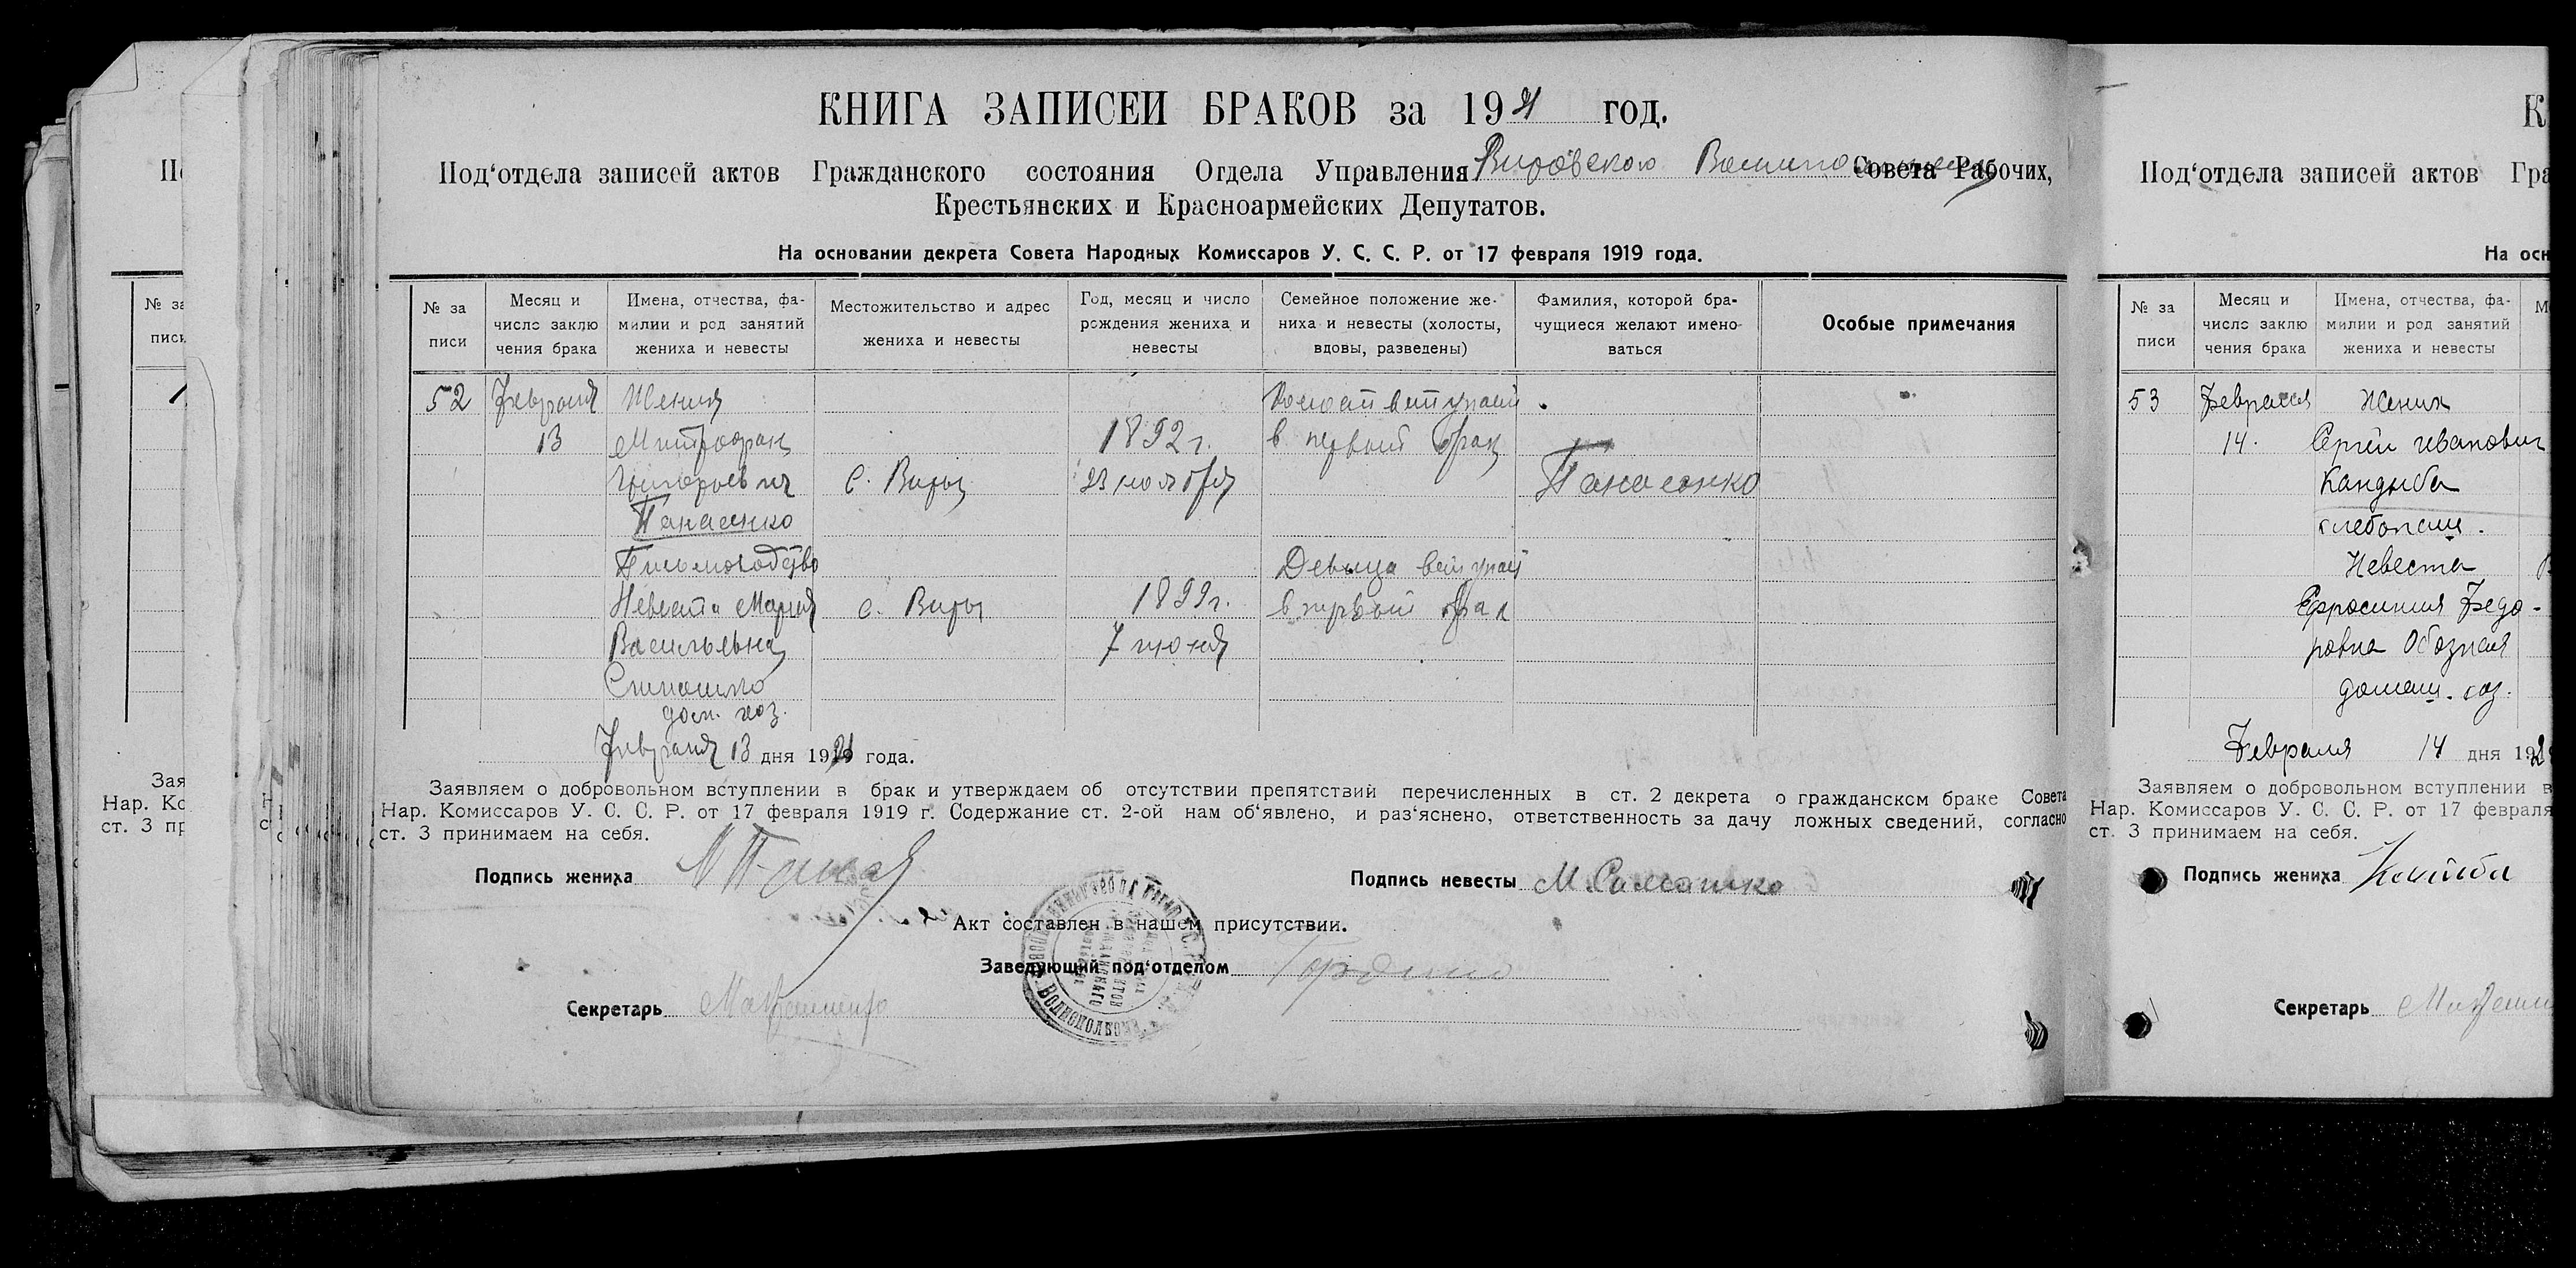 КНИГА ЗАПИСЕЙ БРАКОВ за 1921 год.
Под‘отдела записей актов Гражданского состояния Отдела Управления Вировского Совета Рабочих,
Крестьянских и Красноармейских Депутатов.
На основании декрета Совета Народных Комиссаров У. С. С. Р. от 17 февраля 1919 года.
№ за
писи
Месяц и
число заклю
чения брака
Имена, отчества, фа-
милии и род занятий
жениха и невесты
Местожительство и адрес
жениха и невесты
Год, месяц и число
рождения жениха и
невесты
Семейное положение же-
ниха и невесты (холосты,
вдовы, разведены)
Фамилия, которой бра-
чущиеся желают имено-
ваться
Особые примечания
52 Февраля Жених Холост вступает
13 Митрофан 1892 г. в первый брак
Григорьевич с. Виры 23 ноября Панасенко
Панасенко
Письмоводство Девица вступает
Невеста Мария с. Виры 1899 г. в первый брак
Васильевна 7 июня
дом. хоз.
Февраля 13 дня 1921 года.
Заявляем о добровольном вступлении в брак и утверждаем об отсутствии препятствий перечисленных в ст. 2 декрета о гражданском браке Совета
Нар. Комиссаров У. С. С. Р. от 17 февраля 1919 г. Содержание ст. 2-ой нам об‘явлено, и раз‘яснено, ответственность за дачу ложных сведений, согласно
ст. 3 принимаем на себя.
Подпись жениха
Подпись невесты
Акт составлен в нашем присутствии.
Заведующий под‘отделом
Секретарь
К
Под‘отдела записей актов Гра
На осн
№ за
писи
Месяц и
число заклю
чения брака
Имена, отчества, фа-
милии и род занятий
жениха и невесты
53 Февраля Жених
14. Сергей Иванович
Кандыба
хлебопаш.
Невеста
Ефросиния Федо-
ровна Обозная
домаш. хоз.
Февраля 14 дня 192
Заявляем о добровольном вступлении в
Нар. Комиссаров У. С. С. Р. от 17 февраля
ст. 3 принимаем на себя.
Подпись жениха
Секретарь
№ за
писи
Зая
Нар. Ко
ст. 3 пр